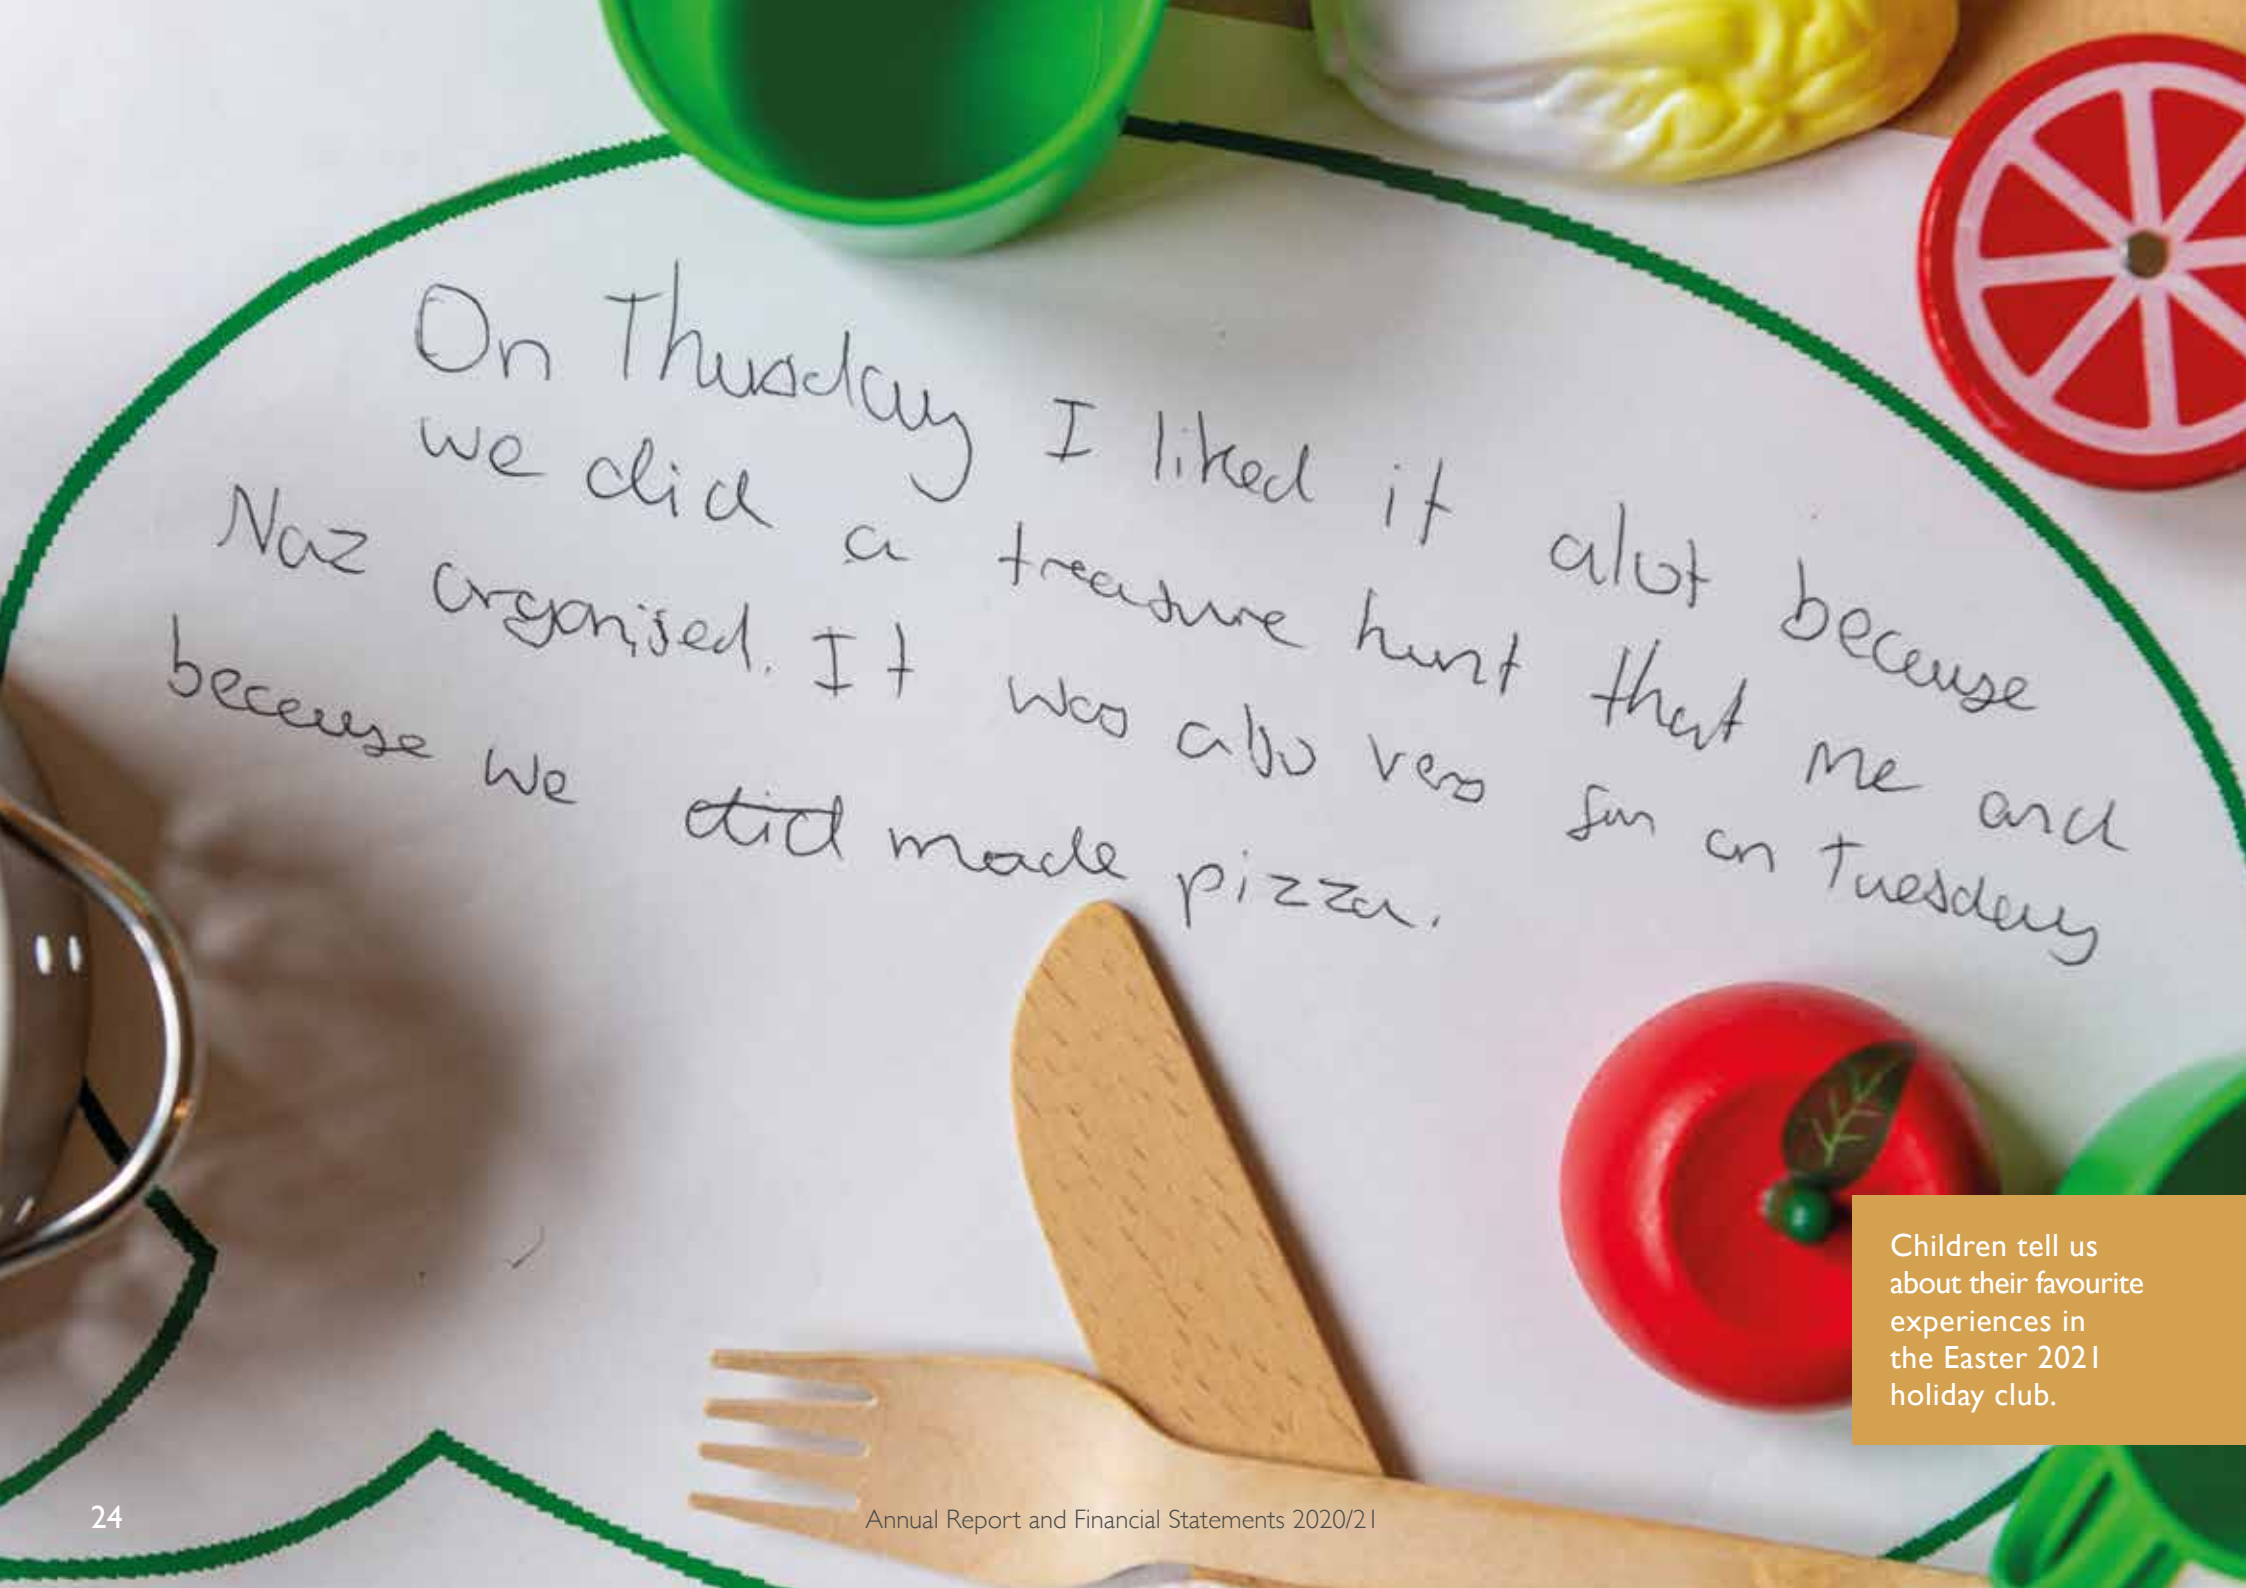 On Thusday I liked it alot because
we did a treasure hunt that me and
Naz organised. It was also very fun on Tuesday
because we did made pizza.
Children tell us
about their favourite
experiences in
the Easter 2021
holiday club.
24
Annual Report and Financial Statements 2020/21